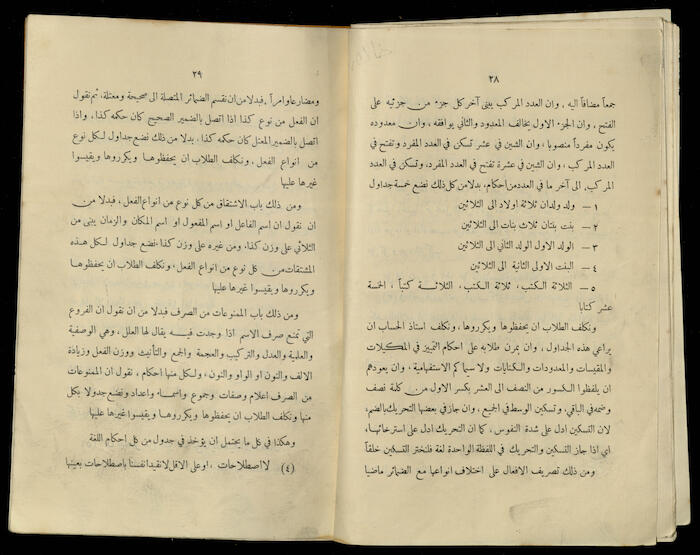 ٢٨
جمعاً مضافاً اليه , وان العدد المركب يبنى آخر كل جزء من جزئيه على
الفتح , وان الجزء الاول يخالف المعدود والثاني يوافقه , وان معدوده
يكون مفرداً منصوبا , وان الشين في عشر تسكن في العدد المفرد وتفتح في
العدد المركب , وان الشين في عشرة تفتح في العدد المفرد , وتسكن في العدد
المركب , الى آخر ما في العدد من احكام , بدلا من كل ذلك نضع خمسة جداول
١ – ولد ولدان ثلاثة اولاد الى الثلاثين
٢ – بنت بنتان ثلاث بنات الى الثلاثين
٣ – الولد الاول الولد الثاني الى الثلاثين
٤ – البنت الاولى الثانية الى الثلاثين
٥ – الثلاثة الكتب , ثلاثة الكتب , الثلاثة كتباً , الخمسة
عشر كتابا
ونكلف الطلاب ان يحفظوها ويكرروها , ونكلف استاذ الحساب ان
يراعي هذه الجداول , وان يمرن طلابه على احكام التمييز في المكيلات
والمقيسات والمعدودات والكنايات ولا سيما كم الاستفهامية , وان يعودهم
ان يلفظوا الكسور من النصف الى العشر بكسر الاول من كلمة نصف
وضمه في الباقي , وتسكين الوسط في الجميع , وان جاز في بعضها التحريك بالضم ,
لان التسكين ادل على شدة النفوس , كما ان التحريك ادل على استرخائها ,
اي اذا جاز التسكين والتحريك في اللفظة الواحدة لغة فلنختر التسكين خلقاً
ومن ذلك تصريف الافعال على اختلاف انواعها مع الضمائر ماضيا
٢٩
ومضارعا وامراً . فبدلا من ان نقسم الضمائر المتصلة الى صحيحة ومعتلة , ثم نقول
ان الفعل من نوع كذا اذا اتصل بالضمير الصحيح كان حكمه كذا , واذا
اتصل بالضمير المعتل كان حكمه كذا , بدلا من ذلك نضع جداول لكل نوع
من انواع الفعل , ونكلف الطلاب ان يحفظوها ويكرروها ويقيسوا
غيرها عليها
ومن ذلك باب الاشتقاق من كل نوع من انواع الفعل , فبدلا من
ان نقول ان اسم الفاعل او اسم المفعول او اسم المكان والزمان يبنى من
الثلاثي على وزن كذا , ومن غيره على وزن كذا , نضع جداول لكل هذه
المشتقات من كل نوع من انواع الفعل , ونكلف الطلاب ان يحفظوها
ويكرروها ويقيسوا غيرها عليها
ومن ذلك باب الممنوعات من الصرف فبدلا من ان نقول ان الفروع
التي تمنع صرف الاسم اذا وجدت فيه يقال لها العلل , وهي الوصفية
والعلمية والعدل والتركيب والعجمة والجمع والتأنيث ووزن الفعل وزيادة
الالف والنون او الواو والنون , ولكل منها احكام , نقول ان الممنوعات
من الصرف اعلام وصفات وجموع واسماء واعداد ونضع جدولا بكل
منها ونكلف الطلاب ان يحفظوها ويكرروها ويقيسوا غيرها عليها
وهكذا في كل ما يحتمل ان يؤخذ في جدول من كل احكام اللغة
(٤) لا اصطلاحات , او على الاقل لا نقيد انفسنا باصطلاحات بعينها